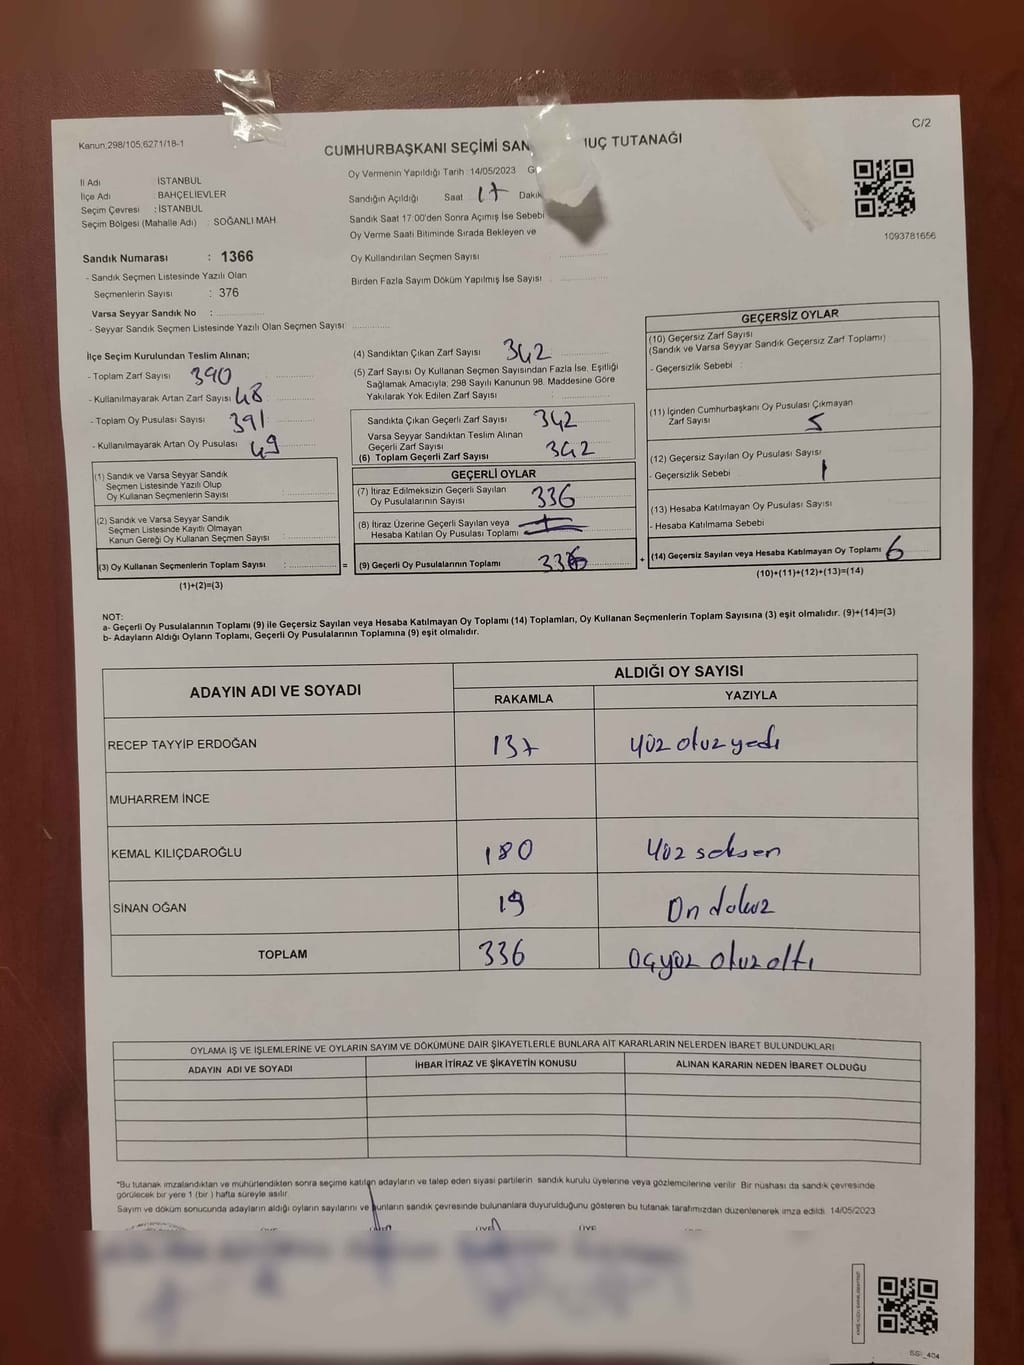 C/2
Kanun;298/105,6271/18-1
CUMHURBAŞKANI SEÇİMİ SAN UÇ TUTANAĞI
İl Adı İSTANBUL
İlçe Adı BAHÇELİEVLER
Seçim Çevresi : İSTANBUL
Seçim Bölgesi (Mahalle Adı) : SOĞANLI MAH.
Oy Vermenin Yapıldığı Tarih : 14/05/2023
Sandığın Açıldığı Saat 17 Dakik
Sandık Saat 17:00'den Sonra Açımış İse Sebebi
Oy Verme Saati Bitiminde Sırada Bekleyen ve
Oy Kullandırılan Seçmen Sayısı
Birden Fazla Sayım Döküm Yapılmış İse Sayısı
1093781656
Sandık Numarası : 1366
- Sandık Seçmen Listesinde Yazılı Olan
Seçmenlerin Sayısı : 376
Varsa Seyyar Sandık No :
- Seyyar Sandık Seçmen Listesinde Yazılı Olan Seçmen Sayısı:
İlçe Seçim Kurulundan Teslim Alınan;
- Toplam Zarf Sayısı 390
- Kullanılmayarak Artan Zarf Sayısı 48
- Toplam Oy Pusulası Sayısı 391
- Kullanılmayarak Artan Oy Pusulası 49
(1) Sandık ve Varsa Seyyar Sandık
Seçmen Listesinde Yazılı Olup
Oy Kullanan Seçmenlerin Sayısı :
(2) Sandık ve Varsa Seyyar Sandık
Seçmen Listesinde Kayıtlı Olmayan
Kanun Gereği Oy Kullanan Seçmen Sayısı :
(3) Oy Kullanan Seçmenlerin Toplam Sayısı : =
(1)+(2)=(3)
(4) Sandıktan Çıkan Zarf Sayısı 342
(5) Zarf Sayısı Oy Kullanan Seçmen Sayısından Fazla İse, Eşitliği
Sağlamak Amacıyla; 298 Sayılı Kanunun 98. Maddesine Göre
Yakılarak Yok Edilen Zarf Sayısı
Sandıkta Çıkan Geçerli Zarf Sayısı 342
Varsa Seyyar Sandıktan Teslim Alınan
Geçerli Zarf Sayısı
(6) Toplam Geçerli Zarf Sayısı 342
GEÇERLİ OYLAR
(7) İtiraz Edilmeksizin Geçerli Sayılan
Oy Pusulalarının Sayısı 336
(8) İtiraz Üzerine Geçerli Sayılan veya
Hesaba Katılan Oy Pusulası Toplamı
(9) Geçerli Oy Pusulalarının Toplamı 336 +
GEÇERSİZ OYLAR
(10) Geçersiz Zarf Sayısı
(Sandık ve Varsa Seyyar Sandık Geçersiz Zarf Toplamı)
- Geçersizlik Sebebi :
(11) İçinden Cumhurbaşkanı Oy Pusulası Çıkmayan
Zarf Sayısı 5
(12) Geçersiz Sayılan Oy Pusulası Sayısı
- Geçersizlik Sebebi : 1
(13) Hesaba Katılmayan Oy Pusulası Sayısı
- Hesaba Katılmama Sebebi
(14) Geçersiz Sayılan veya Hesaba Katılmayan Oy Toplamı 6
(10)+(11)+(12)+(13)=(14)
NOT:
a- Geçerli Oy Pusulalarının Toplamı (9) ile Geçersiz Sayılan veya Hesaba Katılmayan Oy Toplamı (14) Toplamları, Oy Kullanan Seçmenlerin Toplam Sayısına (3) eşit olmalıdır. (9)+(14)=(3)
b- Adayların Aldığı Oyların Toplamı, Geçerli Oy Pusulalarının Toplamına (9) eşit olmalıdır.
ADAYIN ADI VE SOYADI ALDIĞI OY SAYISI
RAKAMLA YAZIYLA
RECEP TAYYİP ERDOĞAN 137 yüz otuz yedi
MUHARREM İNCE
KEMAL KILIÇDAROĞLU 180 yüz seksen
SİNAN OĞAN 19 On dokuz
TOPLAM 336 üçyüz otuz altı
OYLAMA İŞ VE İŞLEMLERİNE VE OYLARIN SAYIM VE DÖKÜMÜNE DAİR ŞİKAYETLERLE BUNLARA AİT KARARLARIN NELERDEN İBARET BULUNDUKLARI
ADAYIN ADI VE SOYADI İHBAR İTİRAZ VE ŞİKAYETİN KONUSU ALINAN KARARIN NEDEN İBARET OLDUĞU
*Bu tutanak imzalandıktan ve mühürlendikten sonra seçime katılan adayların ve talep eden siyasi partilerin sandık kurulu üyelerine veya gözlemcilerine verilir. Bir nüshası da sandık çevresinde
görülecek bir yere 1 (bir) hafta süreyle asılır.
Sayım ve döküm sonucunda adayların aldığı oyların sayılarını ve bunların sandık çevresinde bulunanlara duyurulduğunu gösteren bu tutanak tarafımızdan düzenlenerek imza edildi. 14/05/2023
SSİ_404